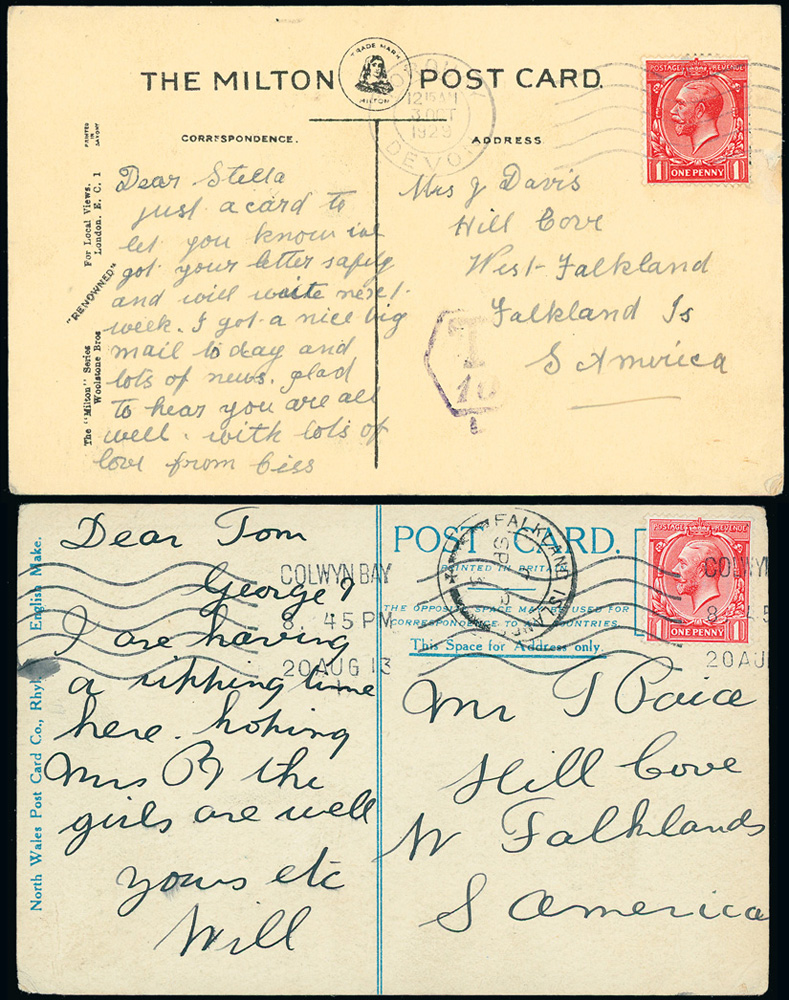 THE MILTON POST CARD.
TRADE MARK
MILTON
12 15 AM
3 OCT
1929
DEVON
POSTAGE REVENUE
1 ONE PENNY 1
PRINTED IN SAXONY
CORRESPONDENCE.
ADDRESS
For Local Views.
London. E. C. 1
"RENOWNED"
The "Milton" Series
Woolstone Bros
Dear Stella
just a card to
let you know ive
got your letter safely
and will write next
week. I got a nice big
mail to day and
lots of news. glad
to hear you are all
well. with lots of
love from Ciss
Mrs J Davis
Hill Cove
West-Falkland
Falkland Is
S America
T
10
North Wales Post Card Co., Rhyl. English Make.
POST CARD.
PRINTED IN BRITAIN
THE OPPOSITE SPACE MAY BE USED FOR
CORRESPONDENCE TO ALL COUNTRIES.
This Space for Address only.
FALKLAND ISLANDS
SP
COLWYN BAY
8. 45 PM
20 AUG 13
COLWYN
8. 45
20 AU
POSTAGE REVENUE
1 ONE PENNY 1
Dear Tom
George &
I are having
a ripping time
here. hoping
Mrs P & the
girls are well
yours etc
Will
Mr T Paice
Hill Cove
W Falklands
S America